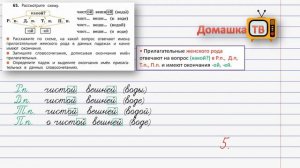 63. Рассмотрите схему.
какой?
Р. п.
Д. п.
Т. п.
П. п.
чистой вешней (воды)
чистой вешней (воде)
• Расскажите по схеме, на какой вопрос отвечают имена прилагательные женского рода в данных падежах и какие имеют окончания.
• Запишите словосочетания, дописывая окончания имён прилагательных.
• Определите падеж и выделите окончания имён прилагательных в данных словосочетаниях.
Домашка
ТВ
• Прилагательные женского рода отвечают на вопрос (какой?) в Р.п., Д.п, Т.п., П.п. и имеют окончания -ой, -ей.
Р.п. чистой вешней (воды)
Д.п. чистой вешней (воде)
Т.п. чистой вешней (водой)
П.п. о чистой вешней (воде)
5.